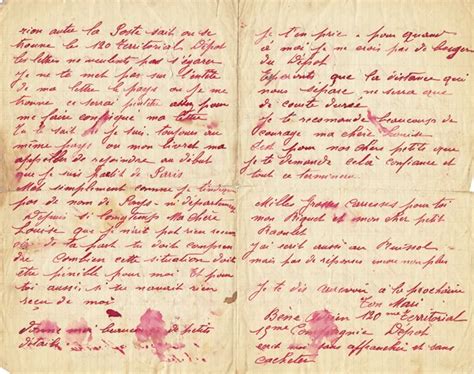 rien autre la Poste sait ou se
trouve le 120 territorial Dépot
les lettre ne veulent pas s'égarer
je ne te met pas sur l'entete
de ma lettre le pays ou je me
trouve ce serrai pour
me faire ma lettre
tu le sait je suis toujours au
même pays ou mon livret ma
de rejoindre au début
que je suis partit de Paris
Mes simplement comme je
pas de nom de Pays ni departement
Depuis si longtemps Ma chère
Louise que je n'ait put rien
de te part tu doit compren
dre Combien cette situation doit
etre pinible pour moi Et pour
toi aussi si tu navait rien
reçu de moi
Donne moi beaucoup de petits
détails
je t'en prie pour quand
a moi je ne crois pas de bouger
du Dépot
que la distance qui
nous sépare ne sera que
de courte durée
je te recomande beaucoup de
courage ma chère
est pour nos chère petite que
je te demande cela confiance et
tout ce terminera
Milles grosses caresses pour toi
mon et mon cher petit
j'ai écrit aussi au
mais pas de réponses encore non plus
je te dis aurevoir a la prochaine
Ton Mari
120 me territorial
15me Compagnie Dépot
ecrit moi sans affranchir et sans
cacheter